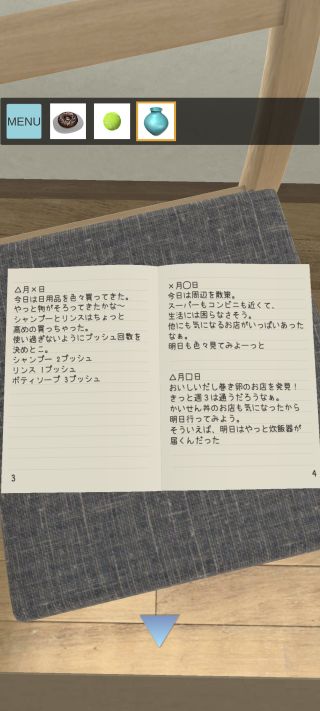 MENU
△月×日
今日は日用品を色々買ってきた。
やっと物がそろってきたかな～
シャンプーとリンスはちょっと
高めの買っちゃった。
使い過ぎないようにプッシュ回数を
決めとこ。
シャンプー 2プッシュ
リンス 1プッシュ
ボディソープ 3プッシュ
3
×月○日
今日は周辺を散策。
スーパーもコンビニも近くて、
生活には困らなさそう。
他にも気になるお店がいっぱいあった
なぁ。
明日も色々見てみよーっと
△月□日
おいしいだし巻き卵のお店を発見！
きっと週3は通うだろうなぁ。
かいせん丼のお店も気になったから
明日行ってみよう。
そういえば、明日はやっと炊飯器が
届くんだった
4